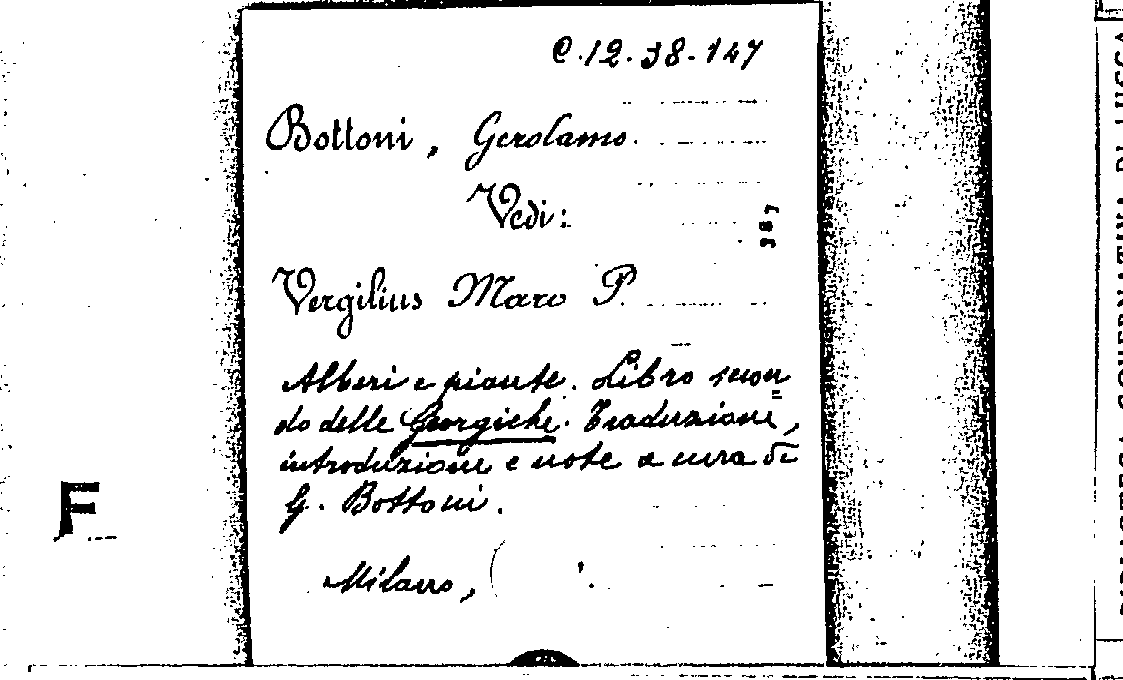 C.12.38.147
Bottoni, Gerolamo.
Vedi:
387
Vergilius Maro P.
Alberi e piante. Libro secon=
do delle Georgiche. Traduzione,
introduzione e note a cura di
G. Bottoni.
F
Milano,